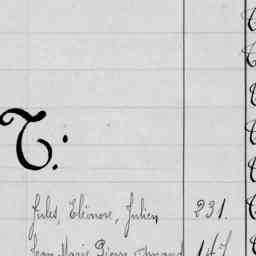 T.:
Jules, Eléonore, Julien 231.
Jean Marie Pierre Armand 147